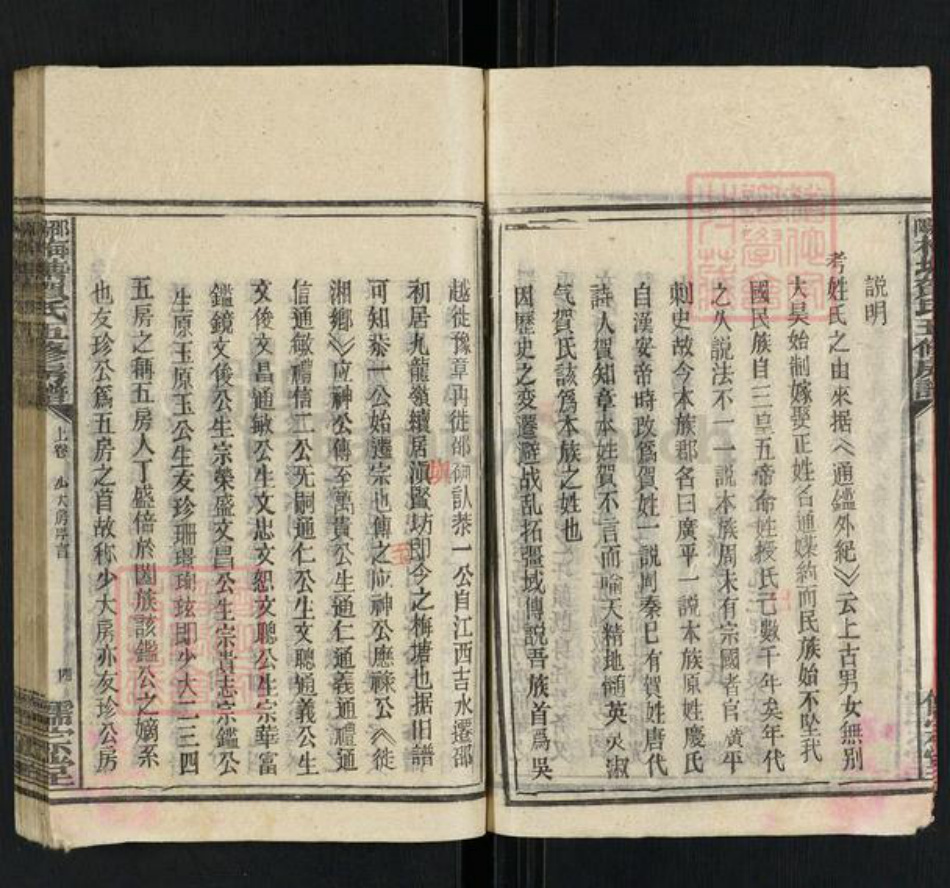 説明
考姓氏之由來据《通鑑外紀》云上古男女無別
大昊始制嫁娶正姓名通媒約而民族始不坠我
國民族自三皇五帝命姓授氏已數千年矣年代
之久説法不一一説本族周末有宗國者官廣平
刺史故今本族郡名曰廣平一説本族原姓慶氏
自漢安帝時改爲賀姓一説周秦已有賀姓唐代
詩人賀知章本姓賀不言而喻天精地髓英灵淑
气賀氏該爲本族之姓也
因歷史之变遷避战乱拓彊域傳説吾族首爲吳
越徙豫章再徙邵嗣訍㳟一公自江西吉水遷邵
初居九龍嶺續居滇賢坊即今之梅塘也据旧譜
可知㳟一公始遷宗也傳之应神公應祿公《徙
湘鄉》应神公傳至萬貴公生通仁通義通禮通
信通敏禮信二公无嗣通仁公生文聰通義公生
文俊文昌通敏公生文忠文恕文聰公生宗華富
鑑鏡文俊公生宗榮盛文昌公生宗貴志宗鑑公
生原玉原玉公生友珍珊瑨瑚玹即少大二三四
五房之稱五房人丁盛倍於闔族該鑑公之嫡系
也友珍公爲五房之首故称少大房亦友珍公房
賀氏五修房譜
上卷
少大房序言
四
儒宗堂